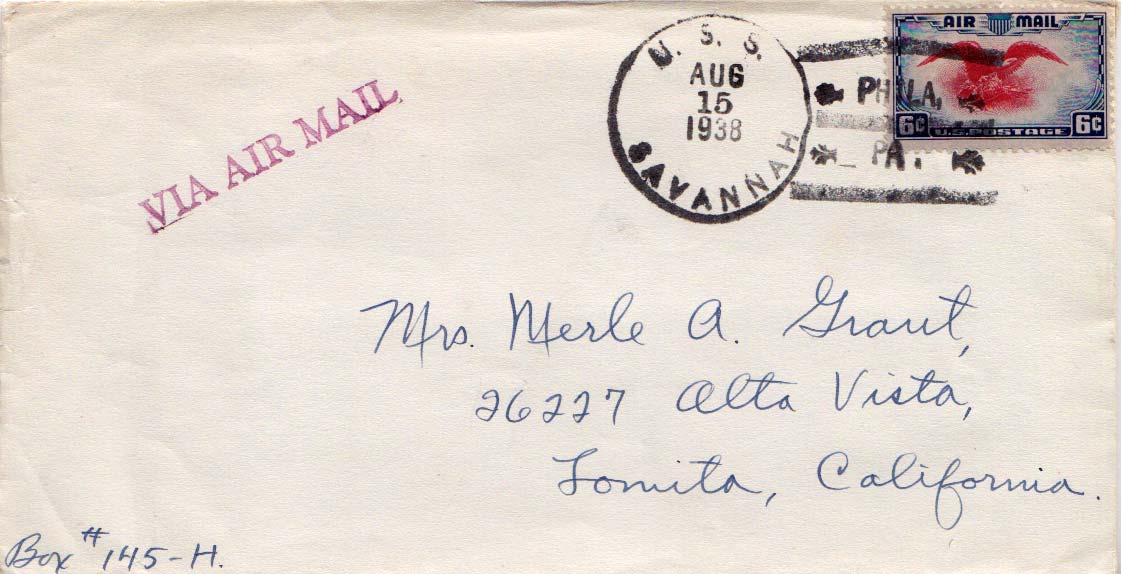 U. S. S.
AUG
15
1938
SAVANNAH
PHILA,
PA.
AIR MAIL
6¢ U.S. POSTAGE 6¢
VIA AIR MAIL
Mrs. Merle A. Grant,
26227 Alta Vista,
Lomita, California.
Box # 145-H.